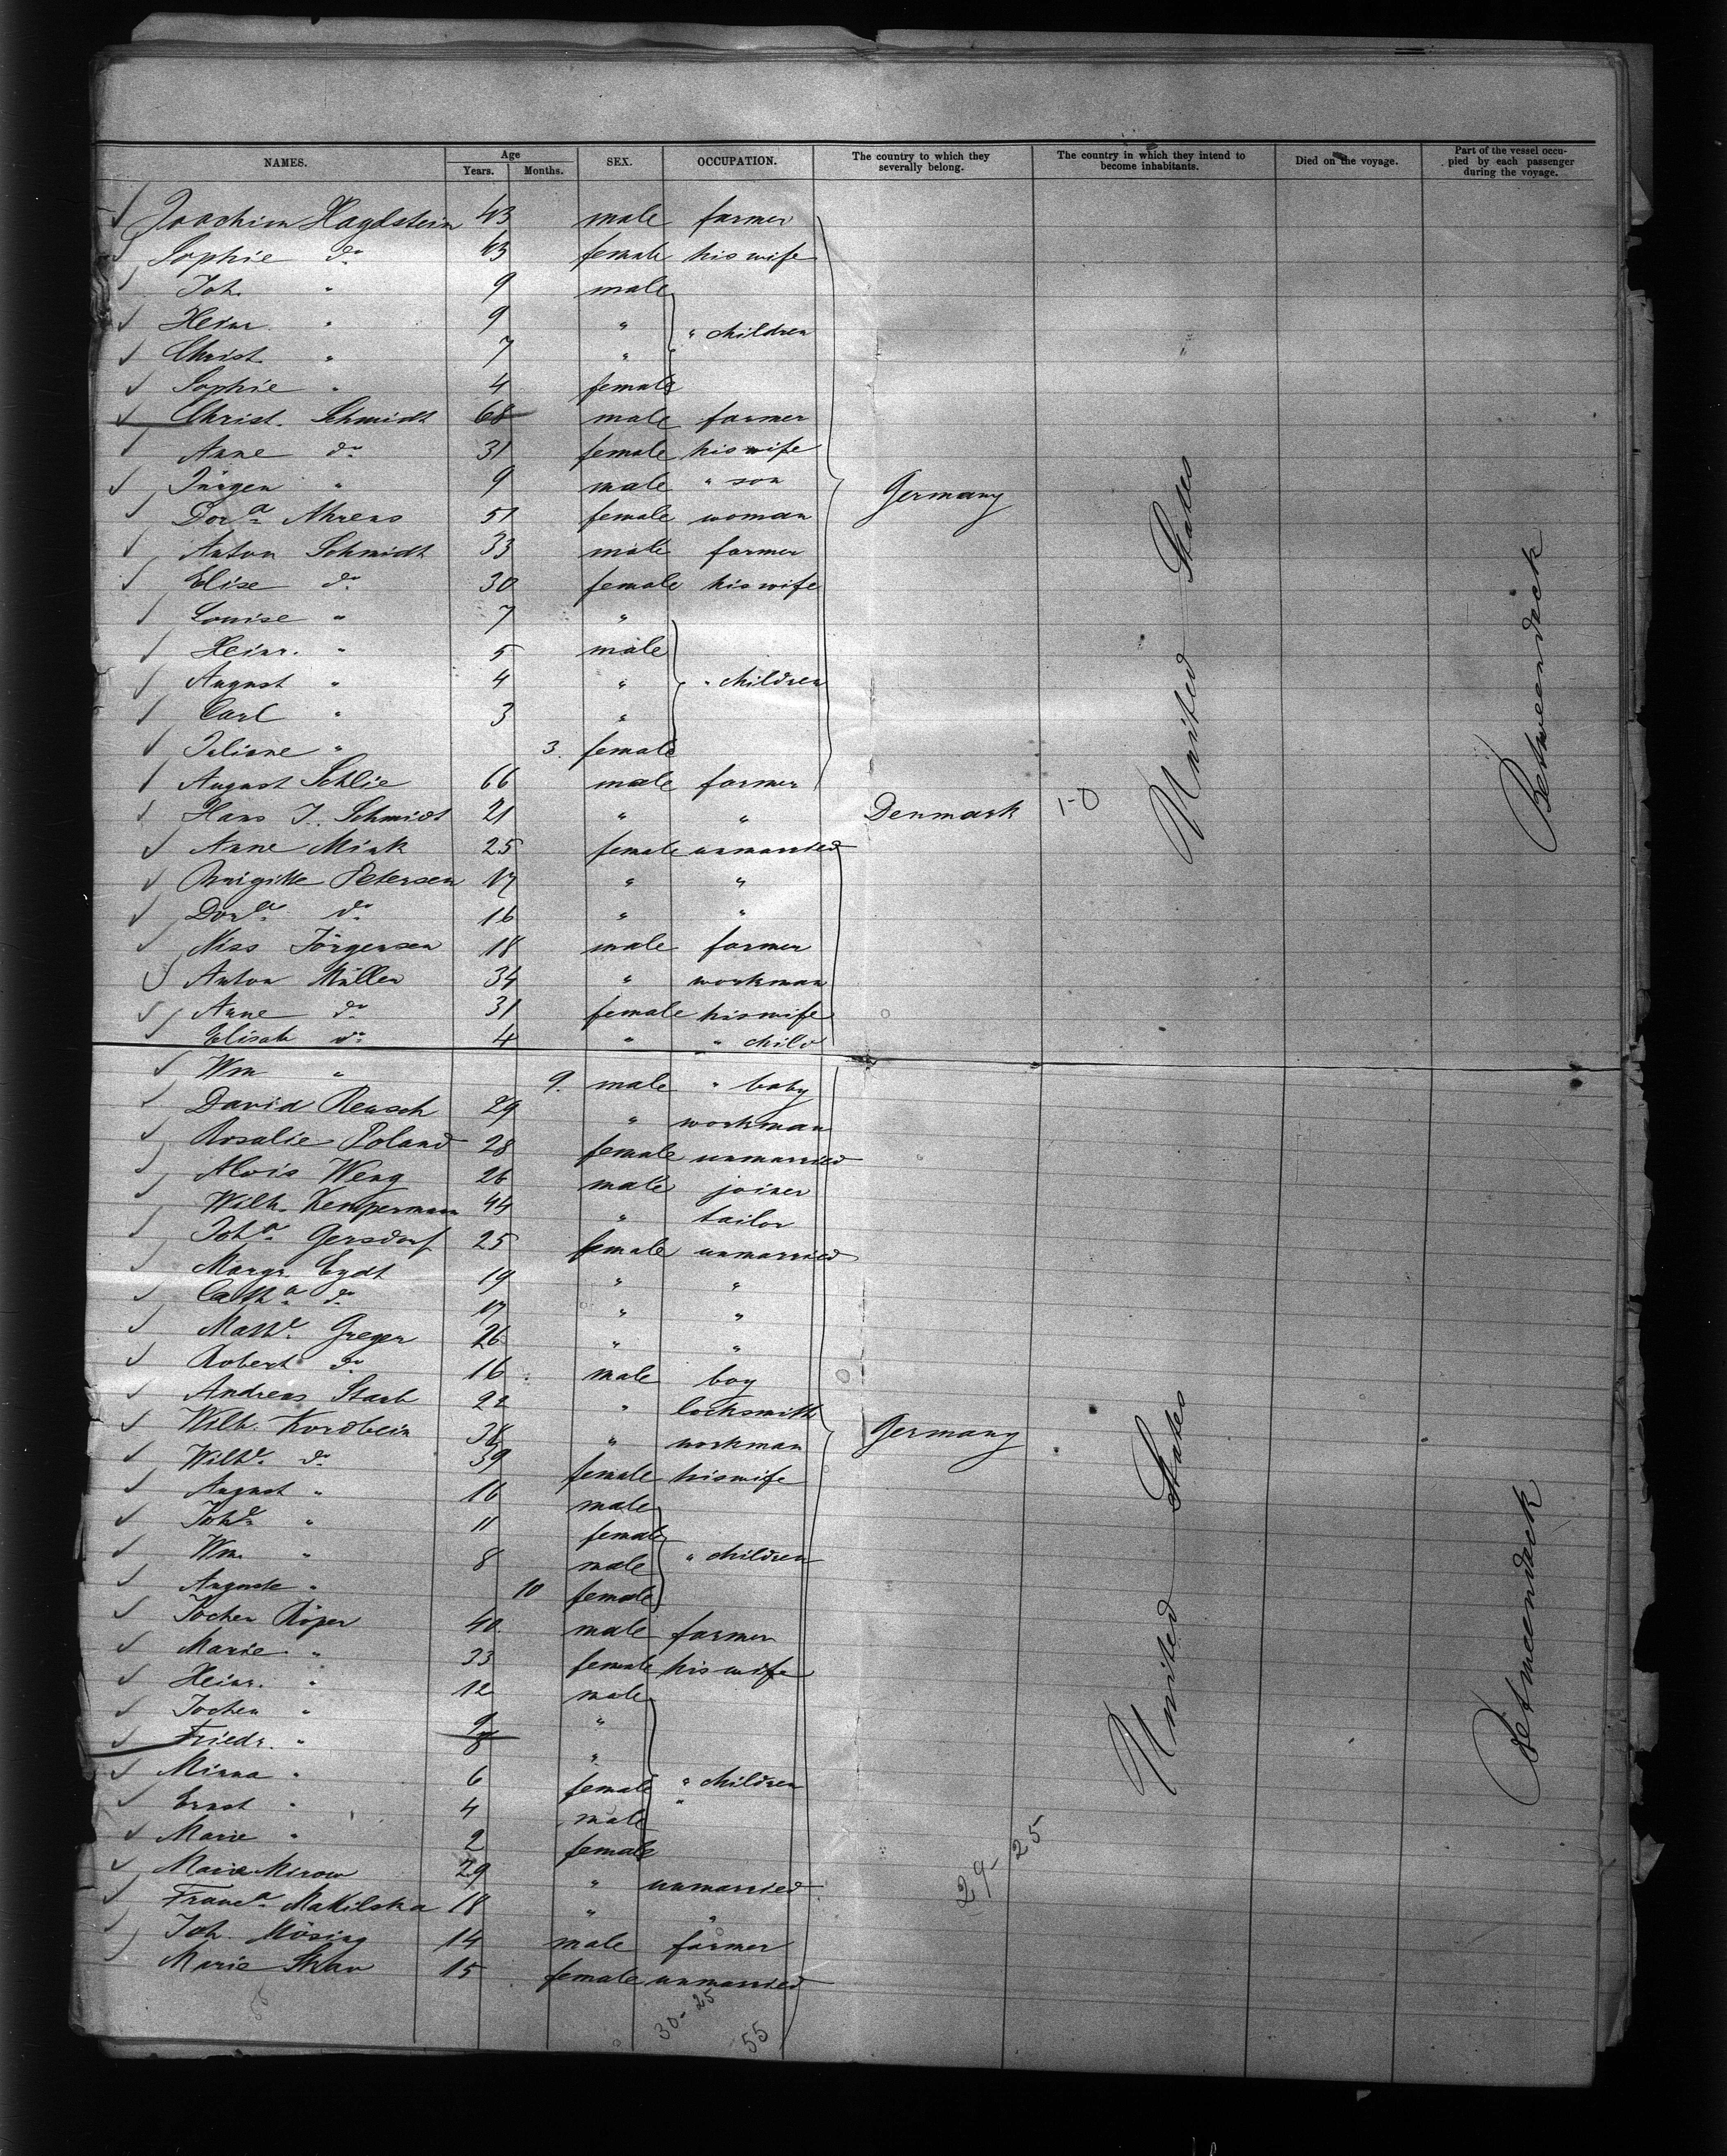 NAMES. Age SEX. OCCUPATION. The country to which they severally belong. The country in which they intend to become inhabitants. Died on the voyage. Part of the vessel occupied by each passenger during the voyage.
Years. Months.
Joachim Hagdstein 43 male farmer
Sophie do 43 female his wife
Joh. " 9 male
Heinr. " 9 " " children
Christ. " 7 "
Sophie " 4 female
Christ. Schmidt 68 male farmer
Anne do 31 female his wife
Jürgen " 9 male " son Germany
Dora Ahrens 51 female woman
Anton Schmidt 33 male farmer
Elise do 30 female his wife
Louise " 7 "
Heinr. " 5 male
August " 4 " " children
Carl " 3 "
Juliane " 3 female
August Schlie 66 male farmer
Hans J. Schmidt 21 " " Denmark 1-0 United States Betweendeck
Anne Mink 25 female unmarried
Brigitte Petersen 17 " "
Dora do 16 " "
Niss Jörgensen 18 male farmer
Anton Müller 34 " workman
Anne do 31 female his wife
Elisab do 4 " " child
Wm " 9. male " baby
David Reusch 29 " workman
Rosalie Poland 28 female unmarried
Alois Weng 26 male joiner
Wilh. Kemperman 44 " tailor
Joha Gersdorf 25 female unmarried
Margr. Eydt 19 " "
Catha do 17 " "
Mathe Greger 26 " "
Robert do 16 male boy
Andreas Starb 22 " locksmith
Wilh. Kordbein 38 " workman Germany
Wilhe do 39 female his wife
August " 16 male
Johe " 11 female
Wm. " 8 male " children
Auguste " 10 female
Jochen Röper 40 male farmer
Marie " 33 female his wife
Heinr. " 12 male
Jochen " 9 "
Friedr. " 8 "
Minna " 6 female " children United States Betweendeck
Ernst " 4 male "
Marie " 2 female
Marie Mirow 29 " unmarried 29-25
Franca Makilska 18 " "
Joh. Mösing 14 male farmer
Marie Thaw 15 female unmarried
55 30-25
55